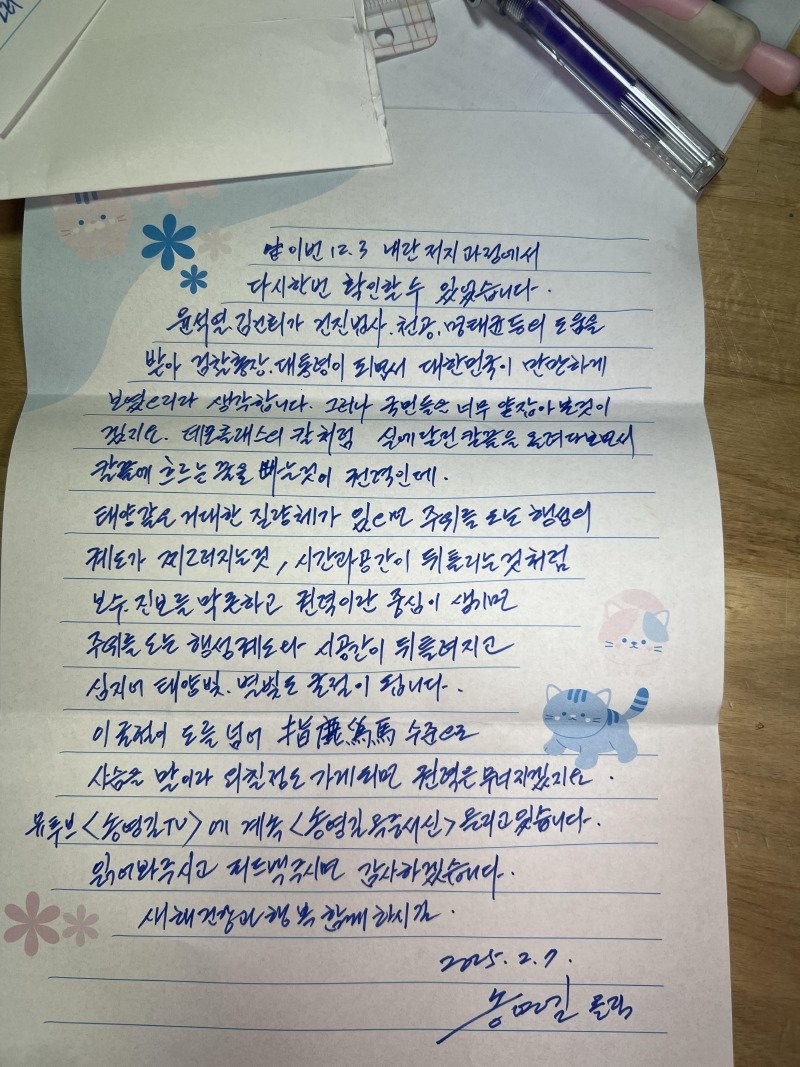 이번 12.3 내란 저지 과정에서
다시한번 확인할 수 있었습니다.
윤석열.김건희가 건진법사.천공.명태균등의 도움을
받아 검찰총장.대통령이 되면서 대한민국이 만만하게
보였으리라 생각합니다. 그러나 국민들은 너무 얕잡아 본것이
겠지요. 데모클래스의 칼처럼 실에 달린 칼끝을 올려다보면서
칼끝에 흐르는 꿀을 빠는것이 권력인데.
태양같은 거대한 질량체가 있으면 주위를 도는 행성의
궤도가 찌그러지는것, 시간과공간이 뒤틀리는것처럼
보수 진보를 막론하고 권력이란 중심이 생기면
주위를 도는 행성궤도와 시공간이 뒤틀려지고
심지어 태양빛.별빛도 굴절이 됩니다.
이 굴절이 도를 넘어 指鹿爲馬 수준으로
사슴을 말이라 외칠정도 가게되면 권력은 무너지겠지요.
유투브 <송영길TV>에 계속 <송영길옥중서신> 올리고 있습니다.
읽어봐주시고 피드백주시면 감사하겠습니다.
새해 건강과 행복 함께 하시길.
2025. 2. 7.
송영길 올림